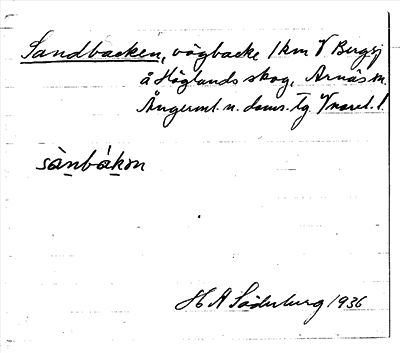 Sandbacken, vägbacke 1 km V Bergsj
å Höglands skog, Arnäs sn.
Ångerml. n. doms. Tg.
sànbákɔn
H A Söderberg 1936